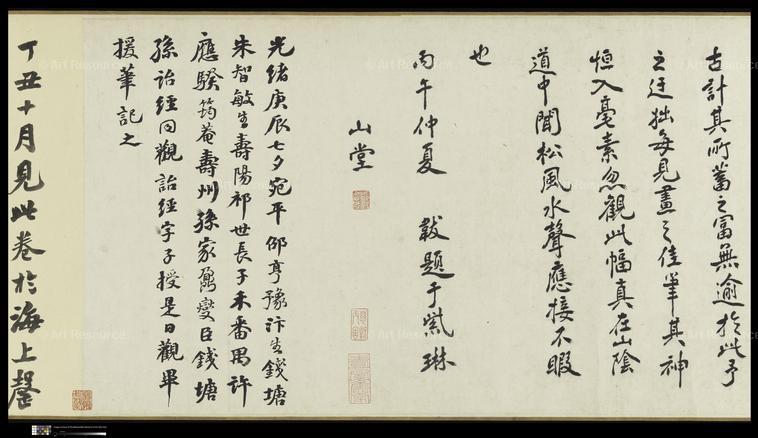 古計其所蓄之富無逾於此予
之迂拙每見畫之佳筆其神
恒入毫素忽觀此幅真在山陰
道中聞松風水聲應接不暇
也
丙午仲夏 敬題于紫琳
山堂
光緒庚辰七夕宛平邵亨豫汴生錢塘
朱智敏生壽陽祁世長子禾番禺許
應騤筠菴壽州孫家鼐燮臣錢塘
孫詒經同觀詒經字子授是日觀畢
援筆記之
丁丑十月見此卷於海上
© Art Resource